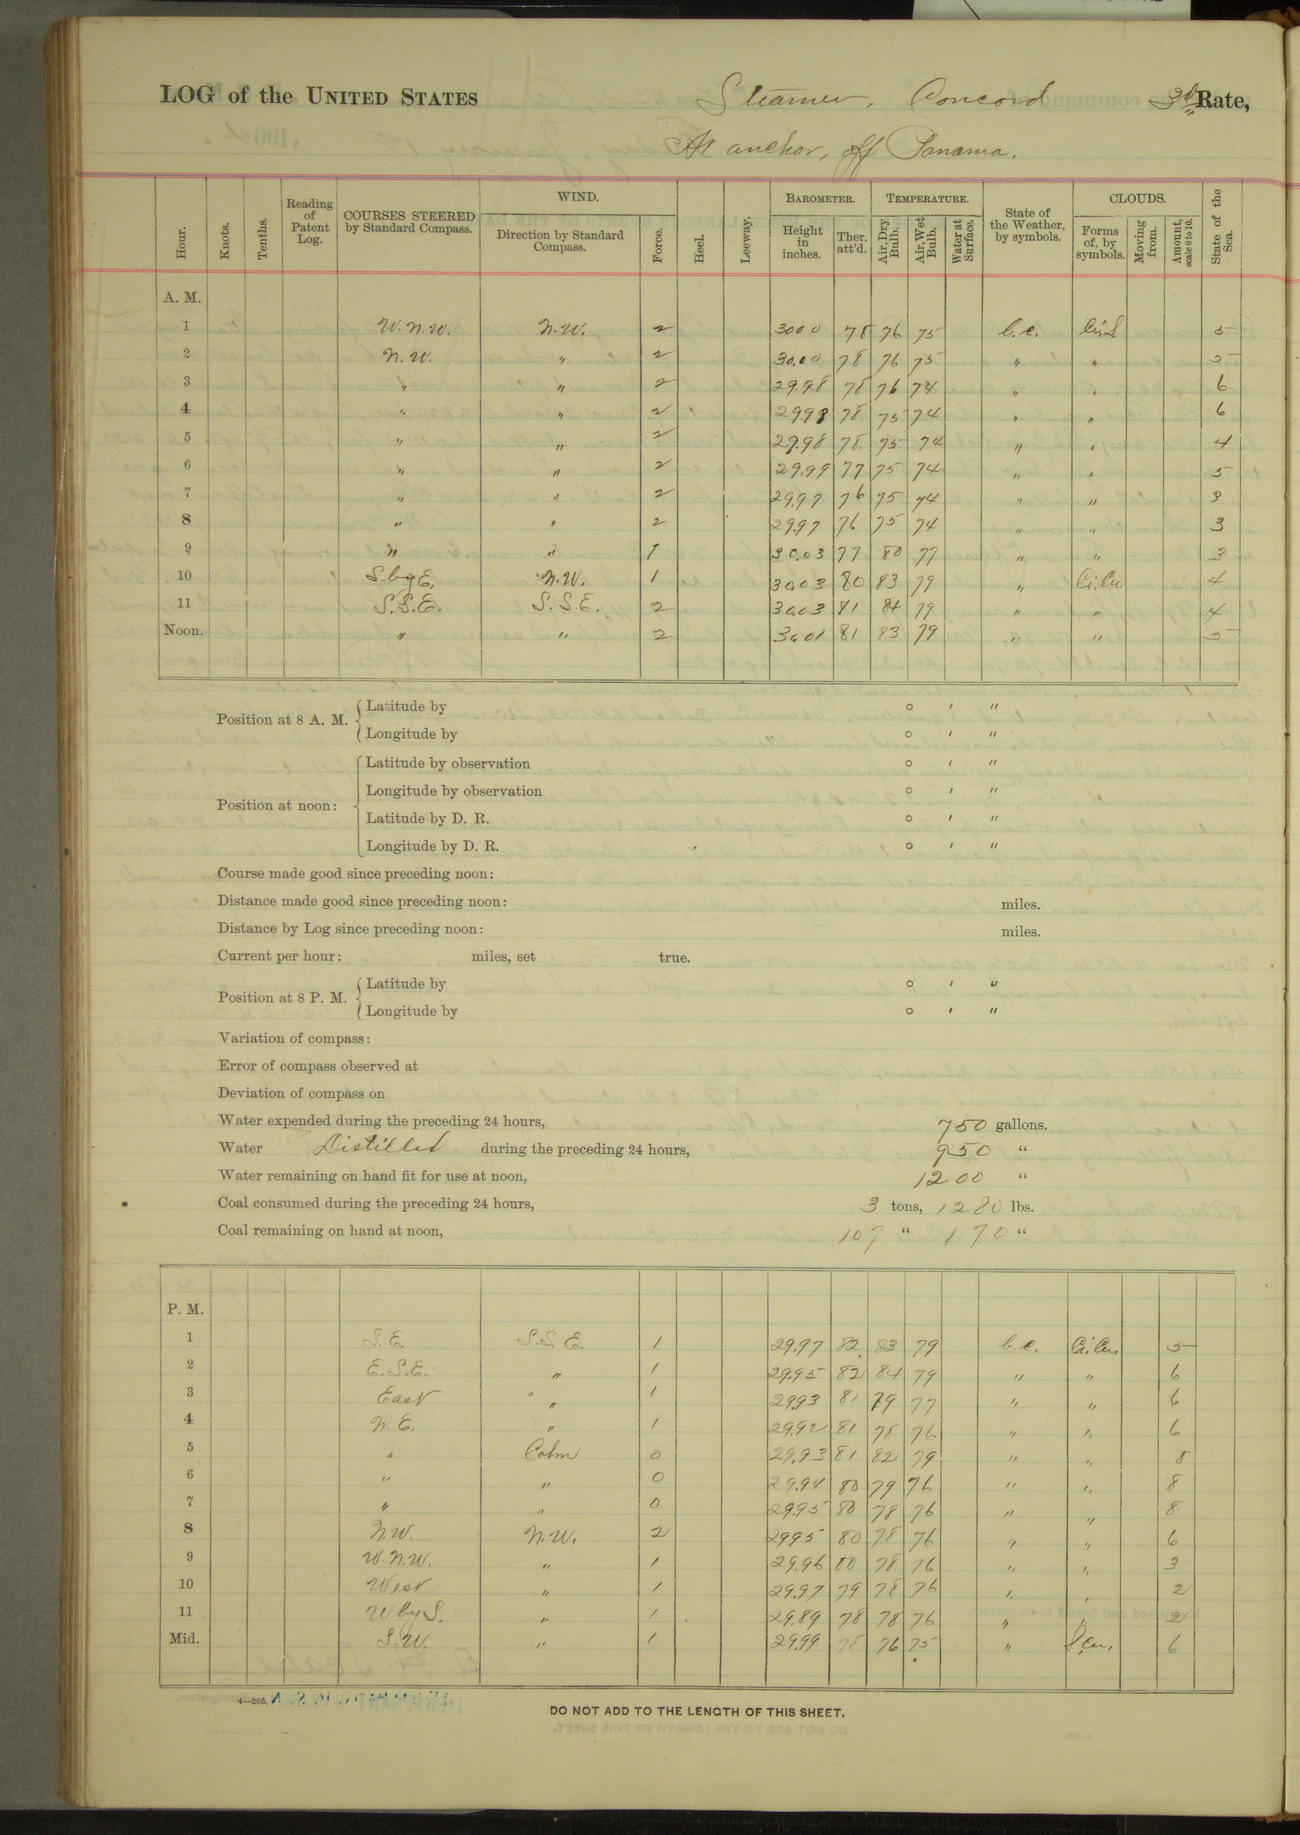 LOG of the UNITED STATES Steamer, Concord 3d Rate,
At anchor, off Panama.
Hour. Knots. Tenths. Reading of Patent Log. COURSES STEERED by Standard Compass. WIND. Direction by Standard Compass. Force. Heel. Leeway. BAROMETER. Height in inches. Ther. att'd. TEMPERATURE. Air, Dry Bulb. Air, Wet Bulb. Water at Surface. State of the Weather, by symbols. CLOUDS. Forms of, by symbols. Moving from. Amount, scale 0 to 10. State of the Sea.
A. M.
1 W.N.W. N.W. 2 30.00 78 76 75 b.c. Ci.S. 5
2 N.W. " 2 30.00 78 76 75 " " 5
3 " " 2 29.98 78 76 74 " " 6
4 " " 2 29.98 78 75 74 " " 6
5 " " 2 29.98 78 75 74 " " 4
6 " " 2 29.99 77 75 74 " " 5
7 " " 2 29.97 76 75 74 " " 3
8 " " 2 29.97 76 75 74 " " 3
9 " " 1 30.03 77 80 77 " " 3
10 S.byE. N.W. 1 30.03 80 83 79 " Ci.Cu. 4
11 S.S.E. S.S.E. 2 30.03 81 84 79 " " 4
Noon. " " 2 30.01 81 83 79 " " 5
Position at 8 A. M. Latitude by ° ' "
Longitude by ° ' "
Position at noon: Latitude by observation ° ' "
Longitude by observation ° ' "
Latitude by D. R. ° ' "
Longitude by D. R. ° ' "
Course made good since preceding noon:
Distance made good since preceding noon: miles.
Distance by Log since preceding noon: miles.
Current per hour: miles, set true.
Position at 8 P. M. Latitude by ° ' "
Longitude by ° ' "
Variation of compass:
Error of compass observed at
Deviation of compass on
Water expended during the preceding 24 hours, 750 gallons.
Water Distilled during the preceding 24 hours, 950 "
Water remaining on hand fit for use at noon, 1200 "
Coal consumed during the preceding 24 hours, 3 tons, 1280 lbs.
Coal remaining on hand at noon, 107 " 170 "
P. M.
1 S.E. S.S.E. 1 29.97 82 83 79 b.c. Ci.Cu. 5
2 E.S.E. " 1 29.95 82 84 79 " " 6
3 East " 1 29.93 81 79 77 " " 6
4 N.E. " 1 29.92 81 78 76 " " 6
5 " Calm 0 29.93 81 82 79 " " 8
6 " " 0 29.94 80 79 76 " " 8
7 " " 0 29.95 80 78 76 " " 8
8 N.W. N.W. 2 29.95 80 78 76 " " 6
9 W.N.W. " 1 29.96 80 78 76 " " 3
10 West " 1 29.97 79 78 76 " " 2
11 W.byS. " 1 29.89 78 78 76 " " 2
Mid. S.W. " 1 29.99 78 76 75 " S.Cu. 6
4—265.
DO NOT ADD TO THE LENGTH OF THIS SHEET.